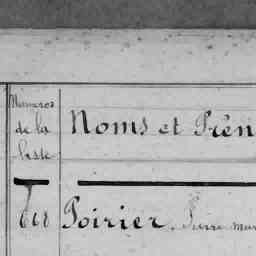 Numéros
de la
liste
Noms et Prén
Poirier, Pierre Mar